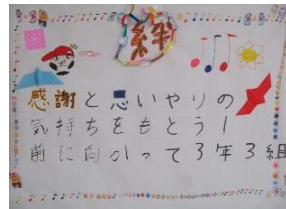 絆
感謝と思いやりの
気持ちをもとう！
前に向かって3年3組